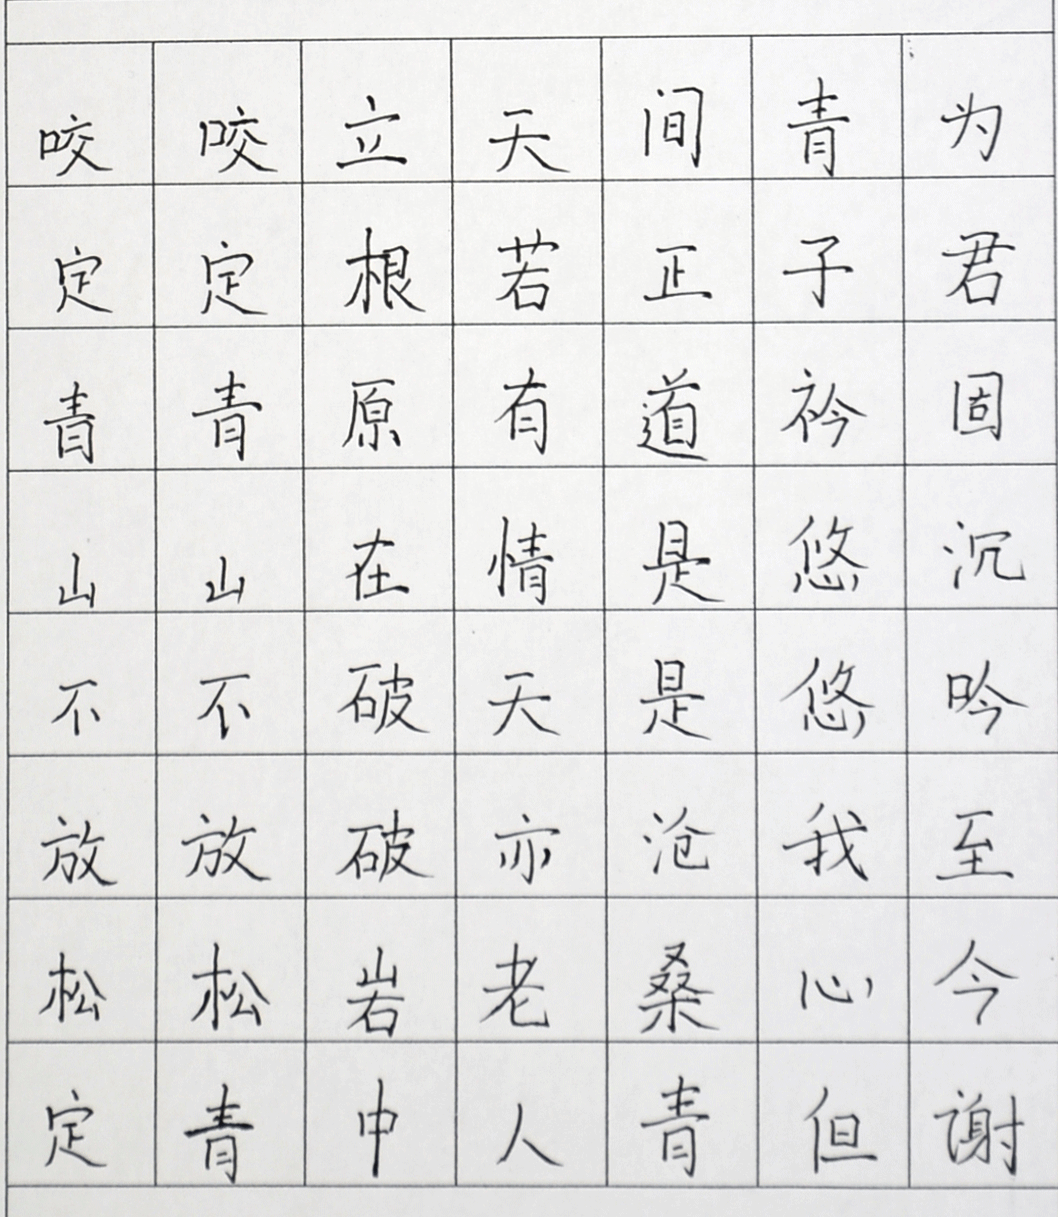 咬定青山不放松定
咬定青山不放松青
立根原在破破岩中
天若有情天亦老人
间正道是是沧桑青
青子衿悠悠我心但
为君固沉吟至今谢